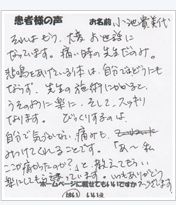 患者様の声 お名前 小池貴美代
それはもう、大変お世話に
なっています。痛い時の先生だのみ。
悲鳴をあげている体は、自分ではどうにも
ならず、先生の施術にかかると、
うそのように楽に、そして、スッキリ
なります。びっくりするのは、
自分で気がつかない痛みも、
みつけてくれることです。「あ〜ね
ここが痛かったか?」と教えてもらい
楽にしてもらっています。いつもありがとう
ホームページに載せてもいいですか?